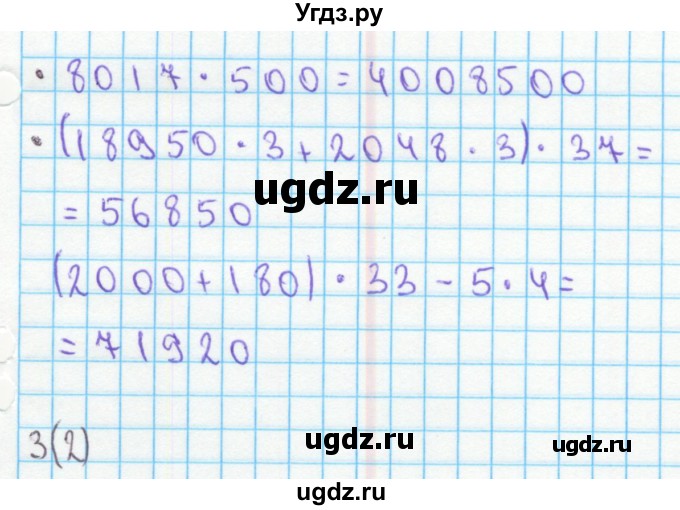 Угдз.ру
· 8017 · 500 = 4008500
· (18950 · 3 + 2048 · 3) · 37 =
ugdz.ru
= 56850
(2000 + 180) · 33 - 5 · 4 =
= 71920
3(2)
ugdz.ru
ugdz.ru
ugdz.ru